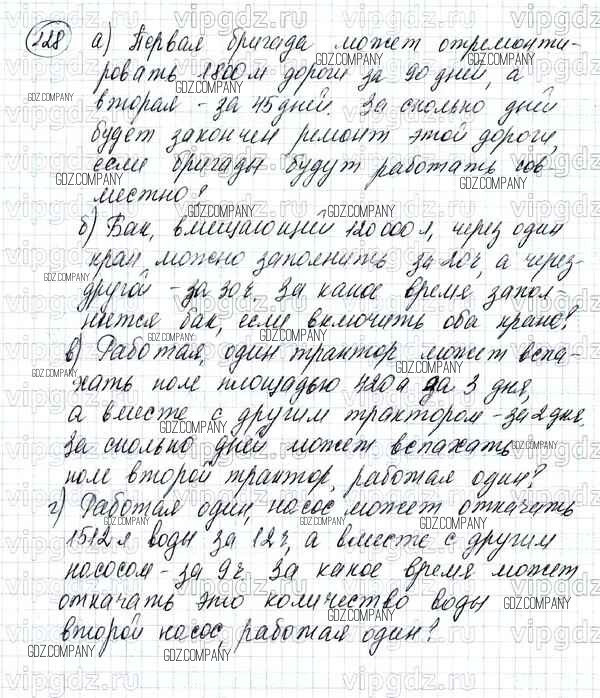 228 а) Первая бригада может отремонти-
ровать 1800 м дороги за 90 дней, а
вторая - за 45 дней. За сколько дней
будет закончен ремонт этой дороги,
если бригады будут работать сов-
местно?
б) Бак, вмещающий 120 000 л, через один
кран можно заполнить за 20 ч, а через
другой - за 30 ч. За какое время запол-
няется бак, если включить оба крана?
в) Работая, один трактор может вспа-
хать поле площадью 420 а за 3 дня,
а вместе с другим трактором - за 2 дня.
За сколько дней может вспахать
поле второй трактор, работая один?
г) Работая один, насос может откачать
1512 л воды за 12 ч, а вместе с другим
насосом - за 9 ч. За какое время может
откачать это количество воды
второй насос, работая один?